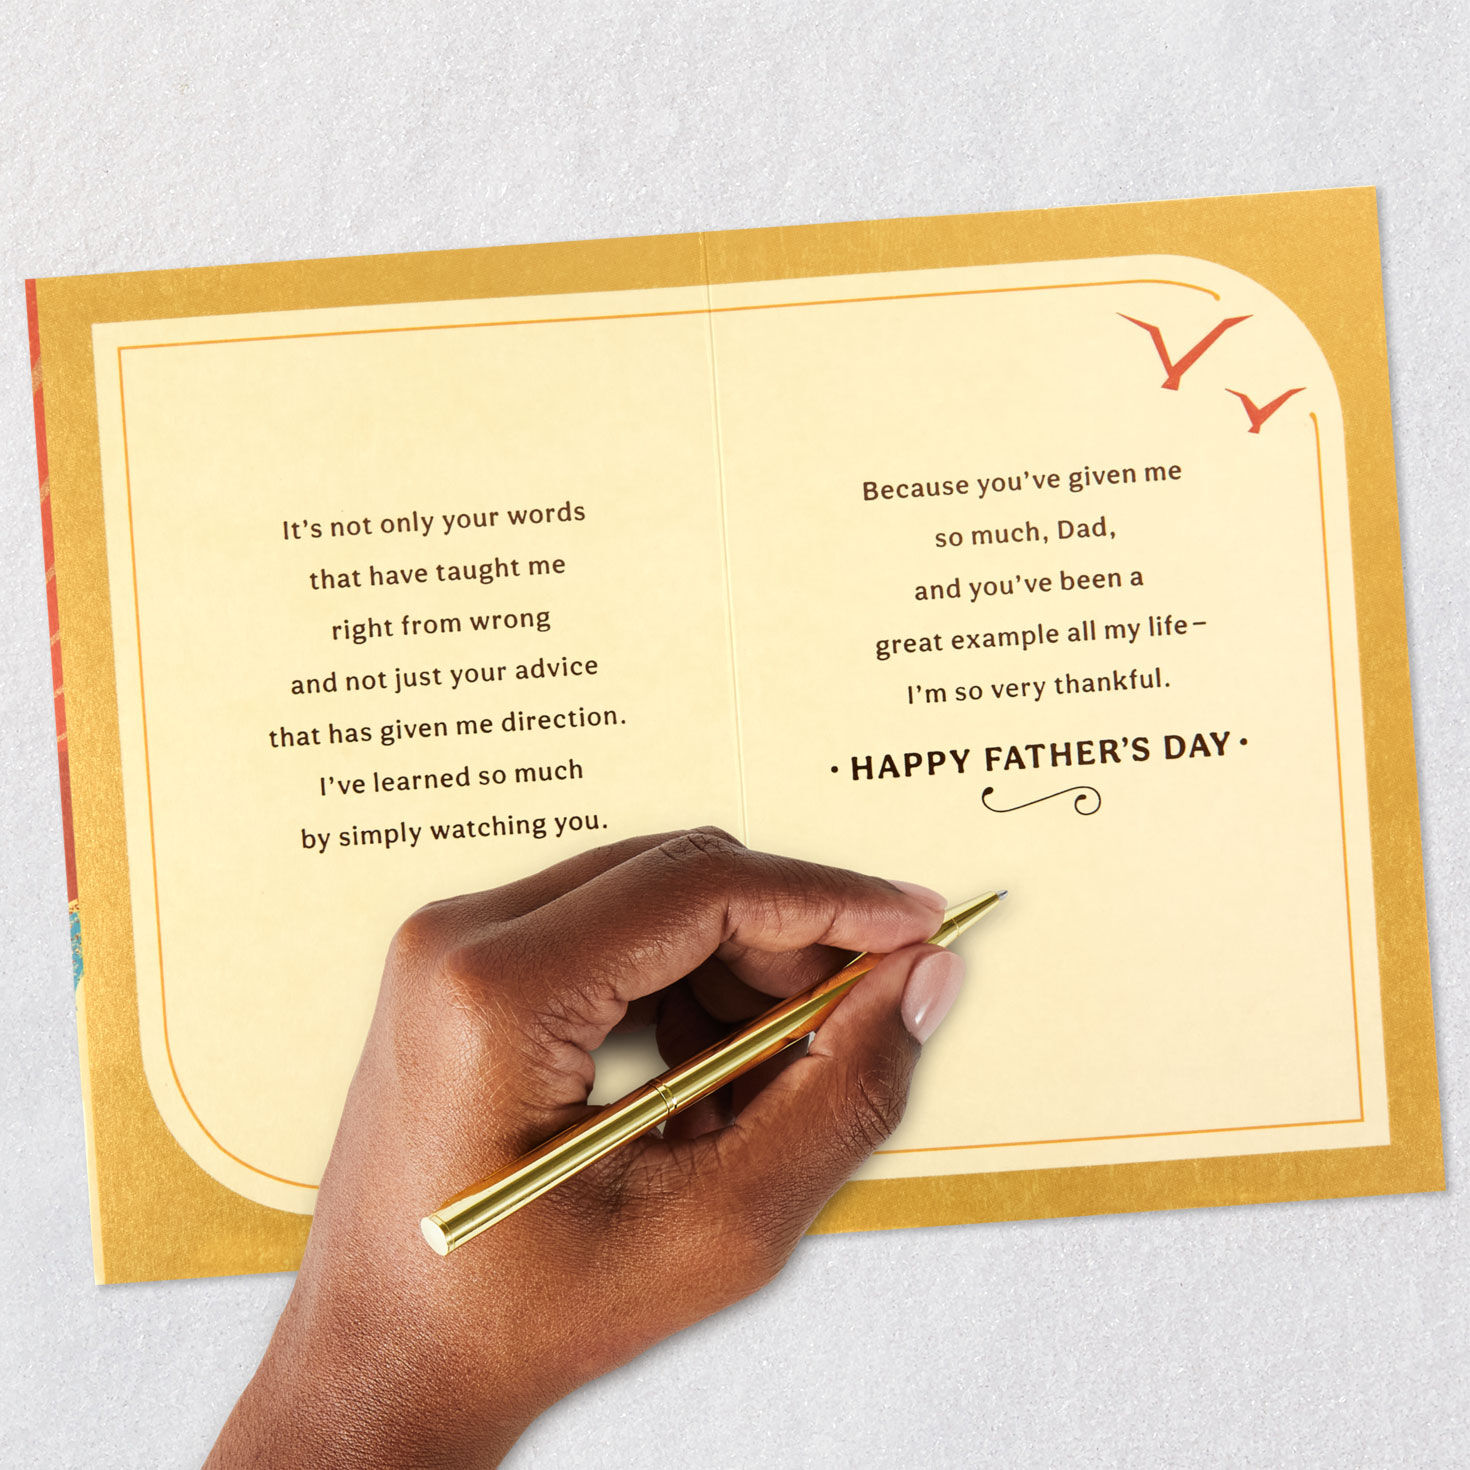 It's not only your words
that have taught me
right from wrong
and not just your advice
that has given me direction.
I've learned so much
by simply watching you.
Because you've given me
so much, Dad,
and you've been a
great example all my life–
I'm so very thankful.
• HAPPY FATHER'S DAY •